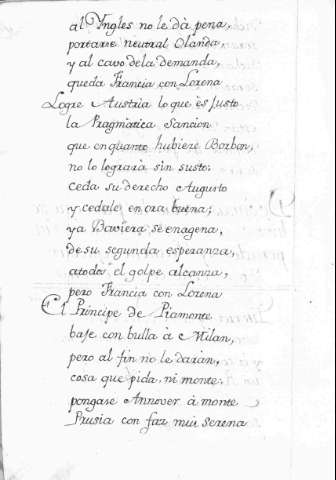 al Yngles no le dà pena,
portarse neutral Olanda,
y al cavo dela demanda,
queda Francia con Lorena
Logre Austria lo que ès Justo
la Pragmàtica Sancion
que en quanto hubiere Borbon,
no lo lograrà sin susto:
Ceda su derecho Augusto
y cedale en ora buena;
ya Baviera se enagena,
de su segunda esperanza,
atodos el golpe alcanza,
pero Francia con Lorena
El Principe de Piamonte
baje con bulla à Milan,
pero al fin no le daràn,
cosa que pida, ni monte:
pongase Annover à monte
Prusia con faz mui serena